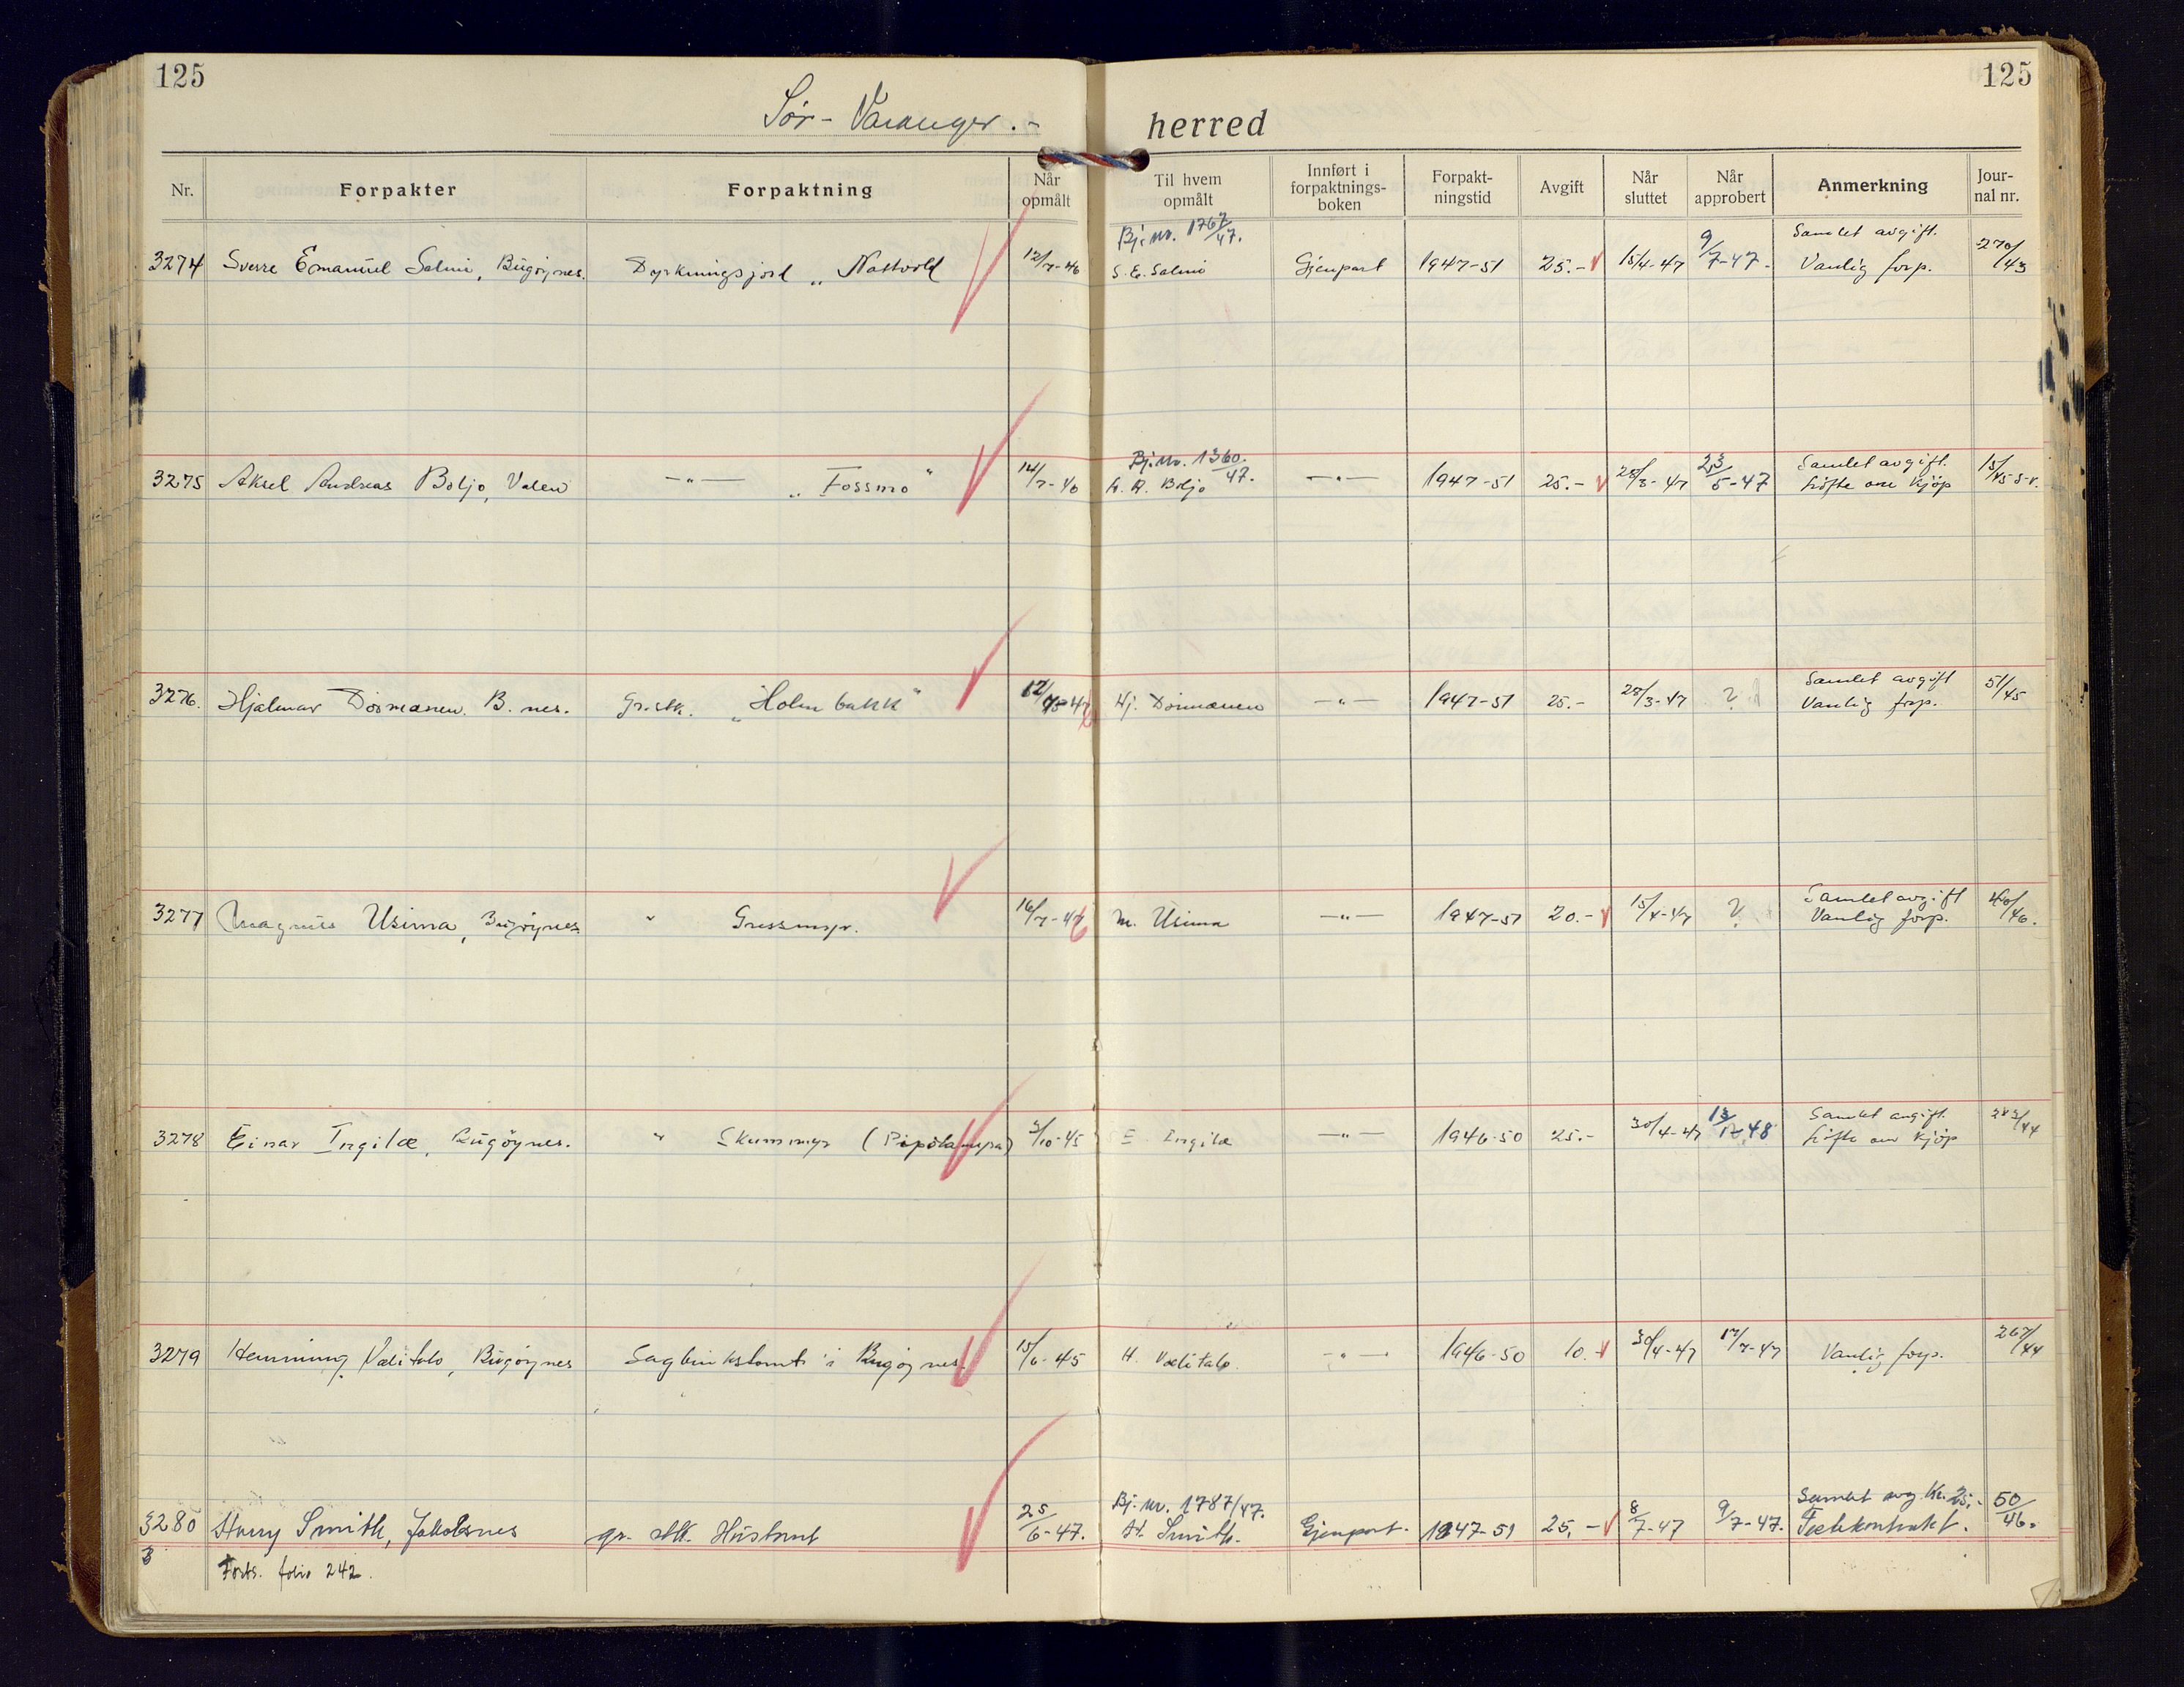 125
125
Sør-Varanger.- herred
Nr. Forpakter Forpaktning Når opmålt Til hvem opmålt Innført i forpaktnings-boken Forpakt-ningstid Avgift Når sluttet Når approbert Anmerkning Jour-nal nr.
Bj.nr. 1767/47. 9/7-47. Samlet avgift. 270/43
3274 Sverre Emanuel Salmi, Bugøynes. Dyrkningsjord „Nattvold 12/7-46 S. E. Salmi Gjenpart 1947-51 25.- 15/4-47 Vanlig forp.
Bj.nr. 1360/47. 23/5-47 Samlet avgift. 15/45 S-V.
3275 Aksel Andreas Boljo, Valen —„— „Fossmo" 14/7-46 A. A. Boljo —„— 1947-51 25.- 28/3-47 Löfte om kjöp
Samlet avgift 51/45
3276. Hjalmar Dørmænen. B.nes. Gr.stk. „Holmbakk" 12/7-46 Hj. Dørmænen —„— 1947-51 25.- 28/3-47 ? Vanlig forp.
Samlet avgift 40/46.
3277 Magnus Usima, Bugøynes „ Gressmyr. 16/7-46 M. Usima —„— 1947-51 20.- 15/4-47 ? Vanlig forp.
Samlet avgift. 283/44
3278 Einar Ingilæ, Bugøynes. „ Skummyr (Pipolamyra) 3/10-45 E. Ingilæ —„— 1946-50 25.- 30/4-47 13/12 48 Löfte om kjöp
3279 Henning Valitalo, Bugøynes Sagbrukstomt i Bugøynes. 15/6-45 H. Valitalo. —„— 1946-50 10.- 30/4-47 17/7-47 Vanlig forp. 267/44
Bj. nr. 1787/47. Samlet avg. Kr. 25,-
3280 Harry Smith, Jakobsnes gr. stk. Hustomt 25/6-47. H. Smith. Gjenpart. 1947-51 25,- 8/7-47 9/7-47. Festekontrakt. 50/46.
Forts. folio 242.